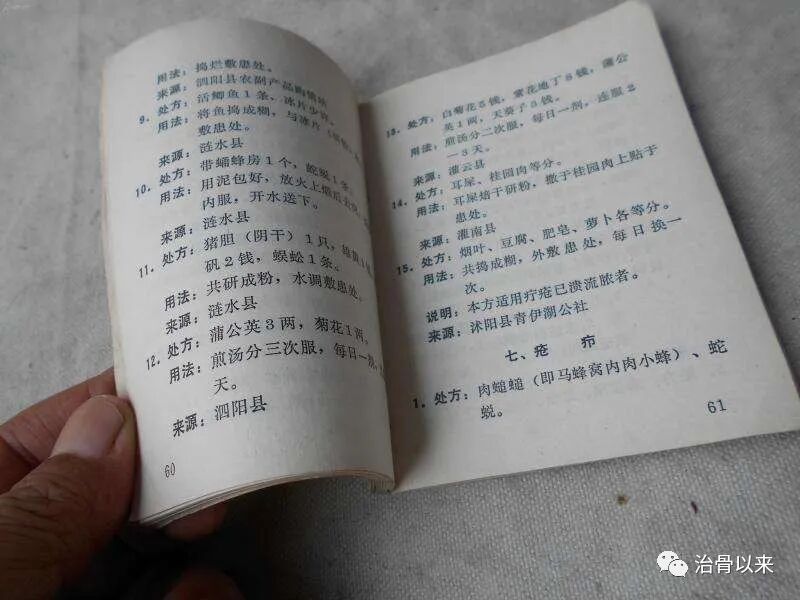 用法：捣烂敷患处。
来源：泗阳县农副产品购销站
9．处方：活鲫鱼1条，冰片少许。
用法：将鱼捣成糊，与冰片
敷患处。
来源：涟水县
10．处方：带蛹蜂房1个，蛇蜕1条
用法：用泥包好，放火上煅后去
内服，开水送下。
来源：涟水县
11．处方：猪胆（阴干）1只，雄黄
矾2钱，蜈蚣1条。
用法：共研成粉，水调敷患处。
来源：涟水县
12．处方：蒲公英3两，菊花1两。
用法：煎汤分三次服，每日一剂，
天。
来源：泗阳县
60
13．处方：白菊花5钱，紫花地丁8钱，蒲公
英1两，天葵子5钱。
用法：煎汤分二次服，每日一剂，连服2
—3天。
来源：灌云县
14．处方：耳屎、桂园肉等分。
用法：耳屎焙干研粉，撒于桂园肉上贴于
患处。
来源：灌南县
15．处方：烟叶、豆腐、肥皂、萝卜各等分。
用法：共捣成糊，外敷患处，每日换一
次。
说明：本方适用疔疮已溃流脓者。
来源：沭阳县青伊湖公社
七、疮 疖
1．处方：肉螕螕（即马蜂窝内肉小蜂）、蛇
蜕。
61
治骨以来